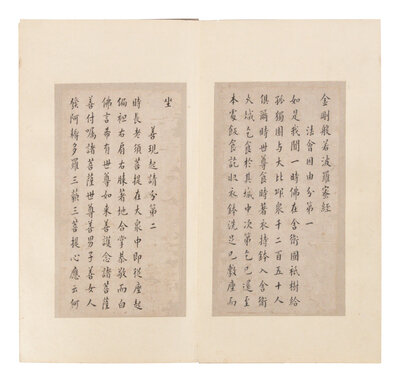 金剛般若波羅蜜經
法會因由分第一
如是我聞一時佛在舍衛國祇樹給
孤獨園與大比邱衆千二百五十人
俱爾時世尊食時著衣持鉢入舍衛
大城乞食於其城中次第乞已還至
本處飯食訖收衣鉢洗足已敷座而
坐
善現起請分第二
時長老須菩提在大衆中即從座起
偏袒右肩右膝著地合掌恭敬而白
佛言希有世尊如來善護念諸菩薩
善付囑諸菩薩世尊善男子善女人
發阿耨多羅三藐三菩提心應云何